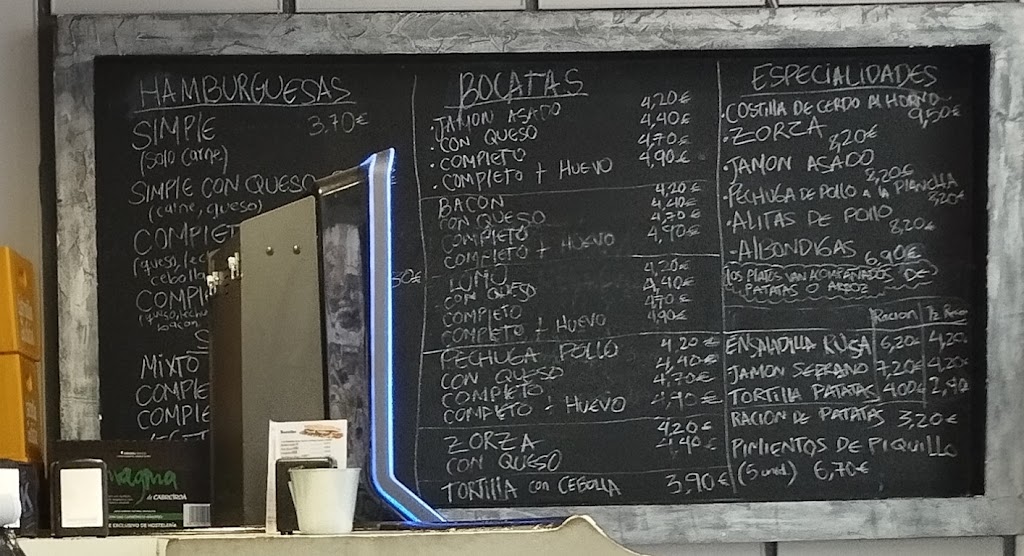 HAMBURGUESAS
SIMPLE 3,70€
(solo carne)
SIMPLE CON QUESO
(carne, queso)
COMPLET
(queso, lec
cebolla
COMPL
(queso, lechu
bacon
MIXTO
COMPLE
COMPLE
BOCATAS
JAMON ASADO 4,20€
CON QUESO 4,40€
COMPLETO 4,70€
COMPLETO + HUEVO 4,90€
BACON 4,20€
CON QUESO 4,40€
COMPLETO 4,70€
COMPLETO + HUEVO 4,90€
LOMO 4,20€
CON QUESO 4,40€
COMPLETO 4,70€
COMPLETO + HUEVO 4,90€
PECHUGA POLLO 4,20€
CON QUESO 4,40€
COMPLETO 4,70€
COMPLETO + HUEVO 4,90€
ZORZA 4,20€
CON QUESO 4,40€
TORTILLA CON CEBOLLA 3,90€
ESPECIALIDADES
COSTILLA DE CERDO AL HORNO 9,50€
ZORZA 8,20€
JAMON ASADO 8,20€
PECHUGA DE POLLO A LA PLANCHA 8,20€
ALITAS DE POLLO 8,20€
ALBONDIGAS 6,90€
LOS PLATOS VAN ACOMPAÑADOS DE
PATATAS O ARROZ
RACION 1/2 RACION
ENSALADILLA RUSA 6,20€ 4,20€
JAMON SERRANO 7,20€ 4,20€
TORTILLA PATATAS 4,00€ 2,40
RACION DE PATATAS 3,20€
PIMIENTOS DE PIQUILLO
(5 und) 6,70€
magna
de CABREIROÁ
EXCLUSIVO DE HOSTELERÍA